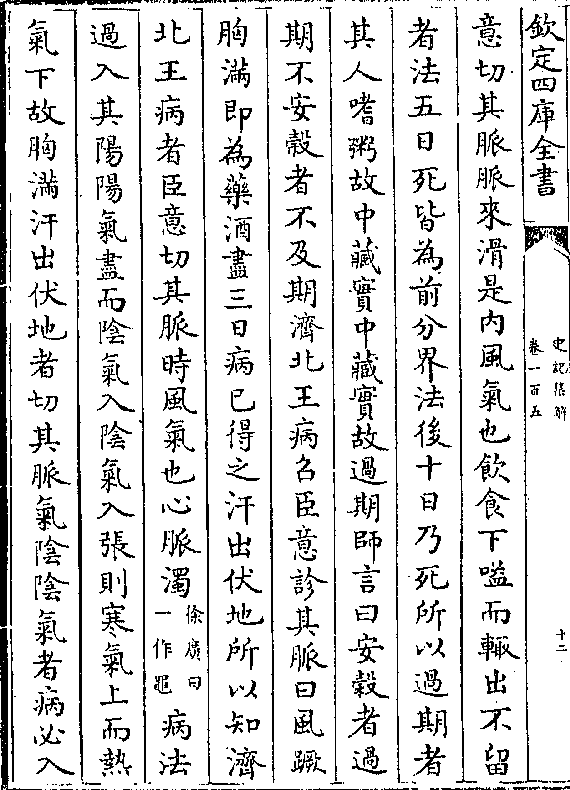 欽定四庫全書
史記集解
卷一百五
十二
意切其脈脈來滑是内風氣也飲食下嗌而輙出不留
者法五日死皆為前分界法後十日乃死所以過期者
其人嗜粥故中藏實中藏實故過期師言曰安穀者過
期不安穀者不及期濟北王病召臣意診其脈曰風蹶
胸滿即為藥酒盡三日病已得之汗出伏地所以知濟
北王病者臣意切其脈時風氣也心脈濁徐廣曰一作黽病法
過入其陽陽氣盡而陰氣入陰氣入張則寒氣上而熱
氣下故胸滿汗出伏地者切其脈氣陰陰氣者病必入